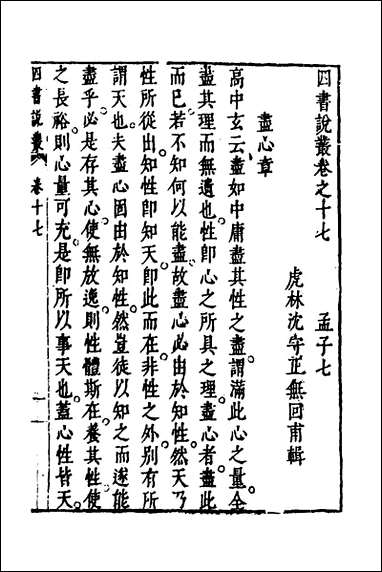 四書說叢卷之十七　孟子七
虎林沈守正無回甫輯
盡心章
高中玄云盡如中庸盡其性之盡謂滿此心之量全
盡其理而無遺也性卽心之所具之理盡心者盡此
而已若不知何以能盡故盡心必由於知性然天乃
性所從出知性卽知天卽此而在非性之外別有所
謂天也夫盡心固由於知性然豈徒以知之而遂能
盡乎必是存其心使無放逸則性體斯在養其性使
之長裕則心量可充是卽所以事天也蓋心性皆天
四書說叢　卷十七　一